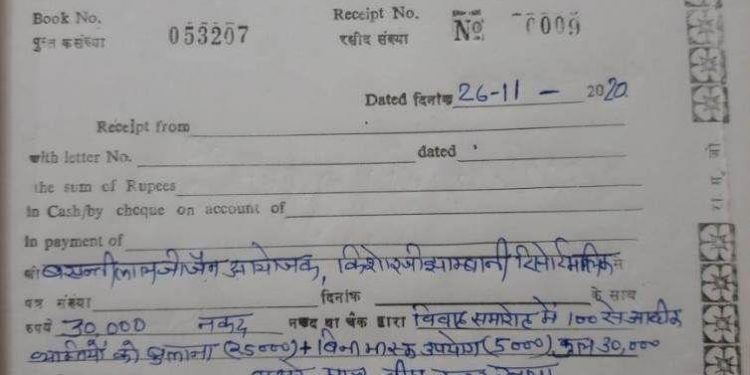 Book No. Receipt No.
पुस्तक संख्या 053207 रसीद संख्या No 0009
Dated दिनांक 26-11 - 2020
Receipt from
with letter No. dated
the sum of Rupees
in Cash/by cheque on account of
In payment of
श्री बसन्तीलालजी जैन आयोजक, किशोरजी झाम्बानी रिसोर्ट मालिक से
पत्र संख्या दिनांक के साथ
रुपये 30,000 नकद नकद या चैक द्वारा विवाह समारोह में 100 से अधिक
व्यक्तियों को बुलाना (25000) + बिना मास्क उपयोग (5000) कुल 30,000